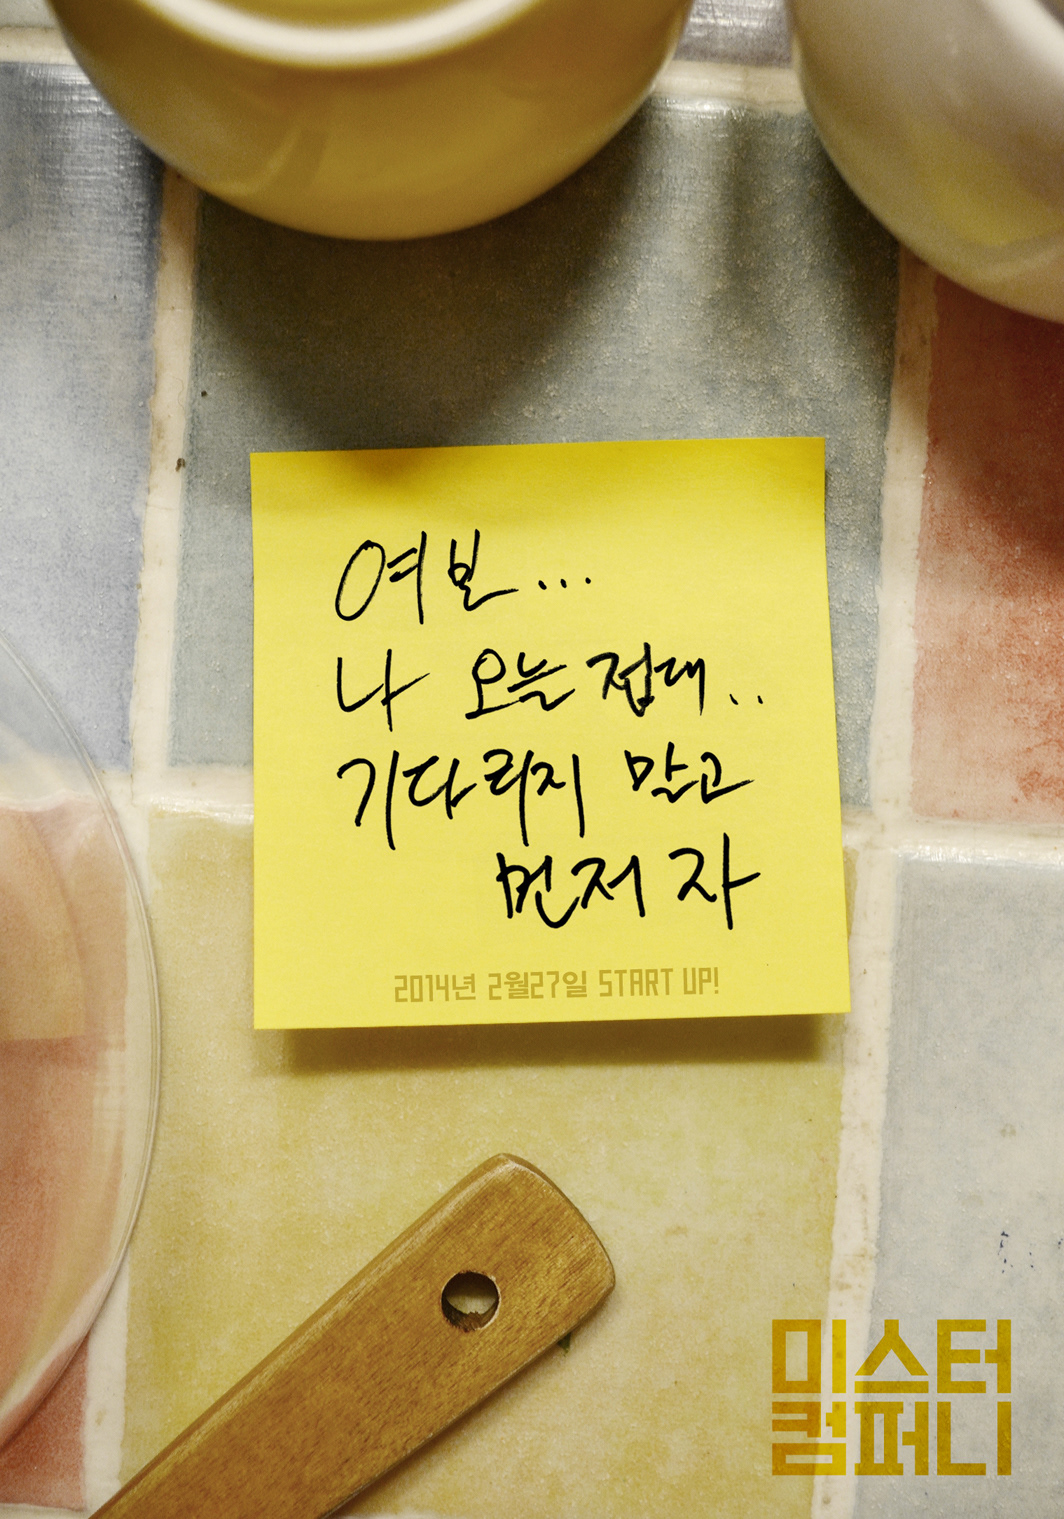 여보...
나 오늘 접대..
기다리지 말고
먼저 자
2014년 2월27일 START UP!
미스터
컴퍼니